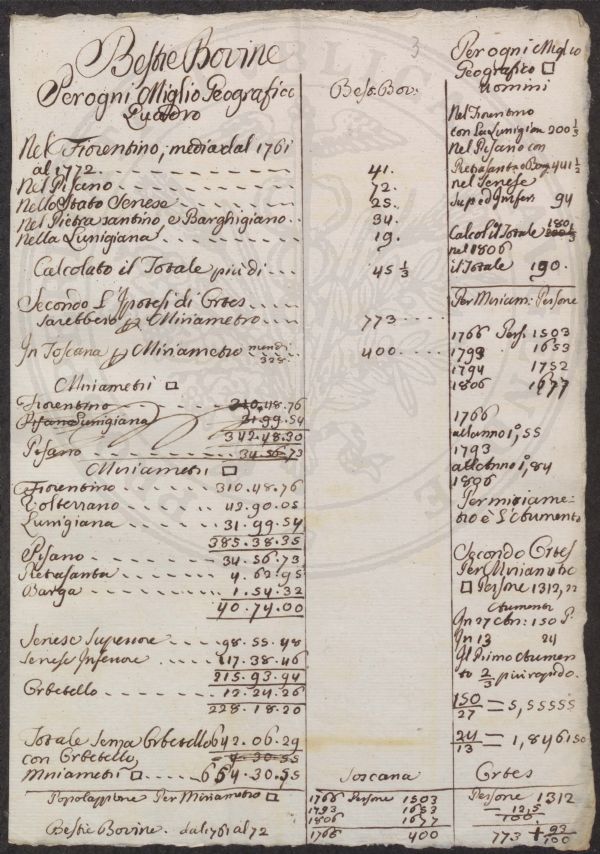 3
Bestie Bovine
Per ogni Miglio Geografico
Quadro
Nel Fiorentino, media dal 1761
al 1772.
Nel Pisano
Nello Stato Senese
Nel Pietrasantino e Barghigiano
Nella Lunigiana
Calcolato il Totale più di
Secondo l'Ipotesi di Ortes
sarebbero Miriametro
In Toscana Miriametro
328
Miriametri □
Fiorentino 310.48.76
Pisano Lunigiana 31.99.54
342.48.30
Pisano 34.56.73
Miriametri □
Fiorentino 310.48.76
Volterrano 42.90.05
Lunigiana 31.99.54
385.38.35
Pisano 34.56.73
Pietrasanta 4.62.95
Barga 1.54.32
40.74.00
Senese Superiore 98.55.48
Senese Inferiore 117.38.46
215.93.94
Orbetello 12.24.26
228.18.20
Totale senza Orbetello 642.06.29
con Orbetello
Miriametri □ 654.30.55
Popolazione Per Miriametro □
Bestie Bovine. dal 1761 al 72
Best: Bov:
41.
72.
25.
34.
19.
45 1/3
773
400
Toscana
1766 Persone 1503
1793 1653
1806 1677
1766 400
Per ogni Miglio
Geografico □
Uomini
Nel Fiorentino
con La Lunigian 200 1/3
Nel Pisano con
Pietrasanta e Barg 441 1/2
nel Senese
Sup ed Infer 94
Calcol il Totale 180
nel 1806
il Totale 190.
Per Miriam: Persone
1766 Pers. 1503
1793 1653
1794 1752
1806 1677
1766
all anno 1°, 55
1793
all Anno 1°, 84
1806
Per miriame-
tro è L'Aumento
Secondo Ortes
Per Miriametro
□ Persone 1312,12
Aumento
In 27 An: 150 P.
In 13 24
Il Primo Aumen
to 2/3 più rapido.
150/27 = 5,55555
24/13 = 1,846150
Ortes
Persone 1312
12,5/100
773 + 93/100